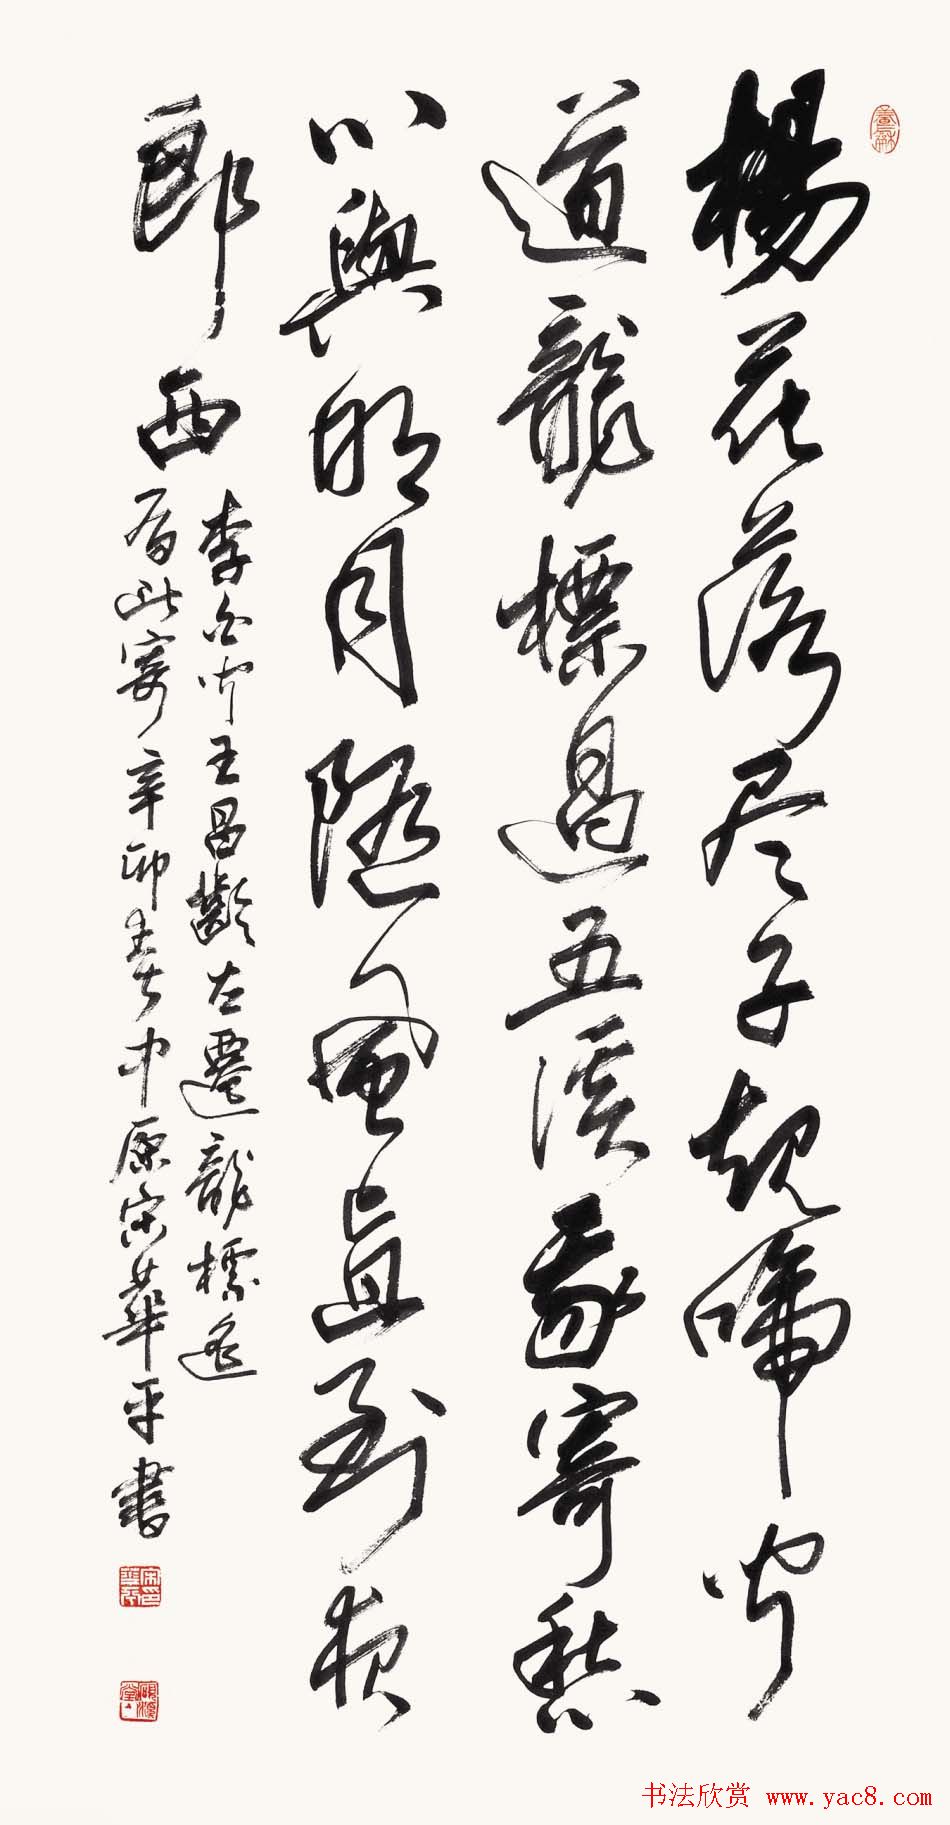 楊花落尽子規啼闻
道龍標過五溪我寄愁
心與明月随風直到夜
郎西
李白闻王昌齡左遷龍標遙
有此寄辛卯春中原宋華平書
宋印華平
书法欣赏 www.yac8.com